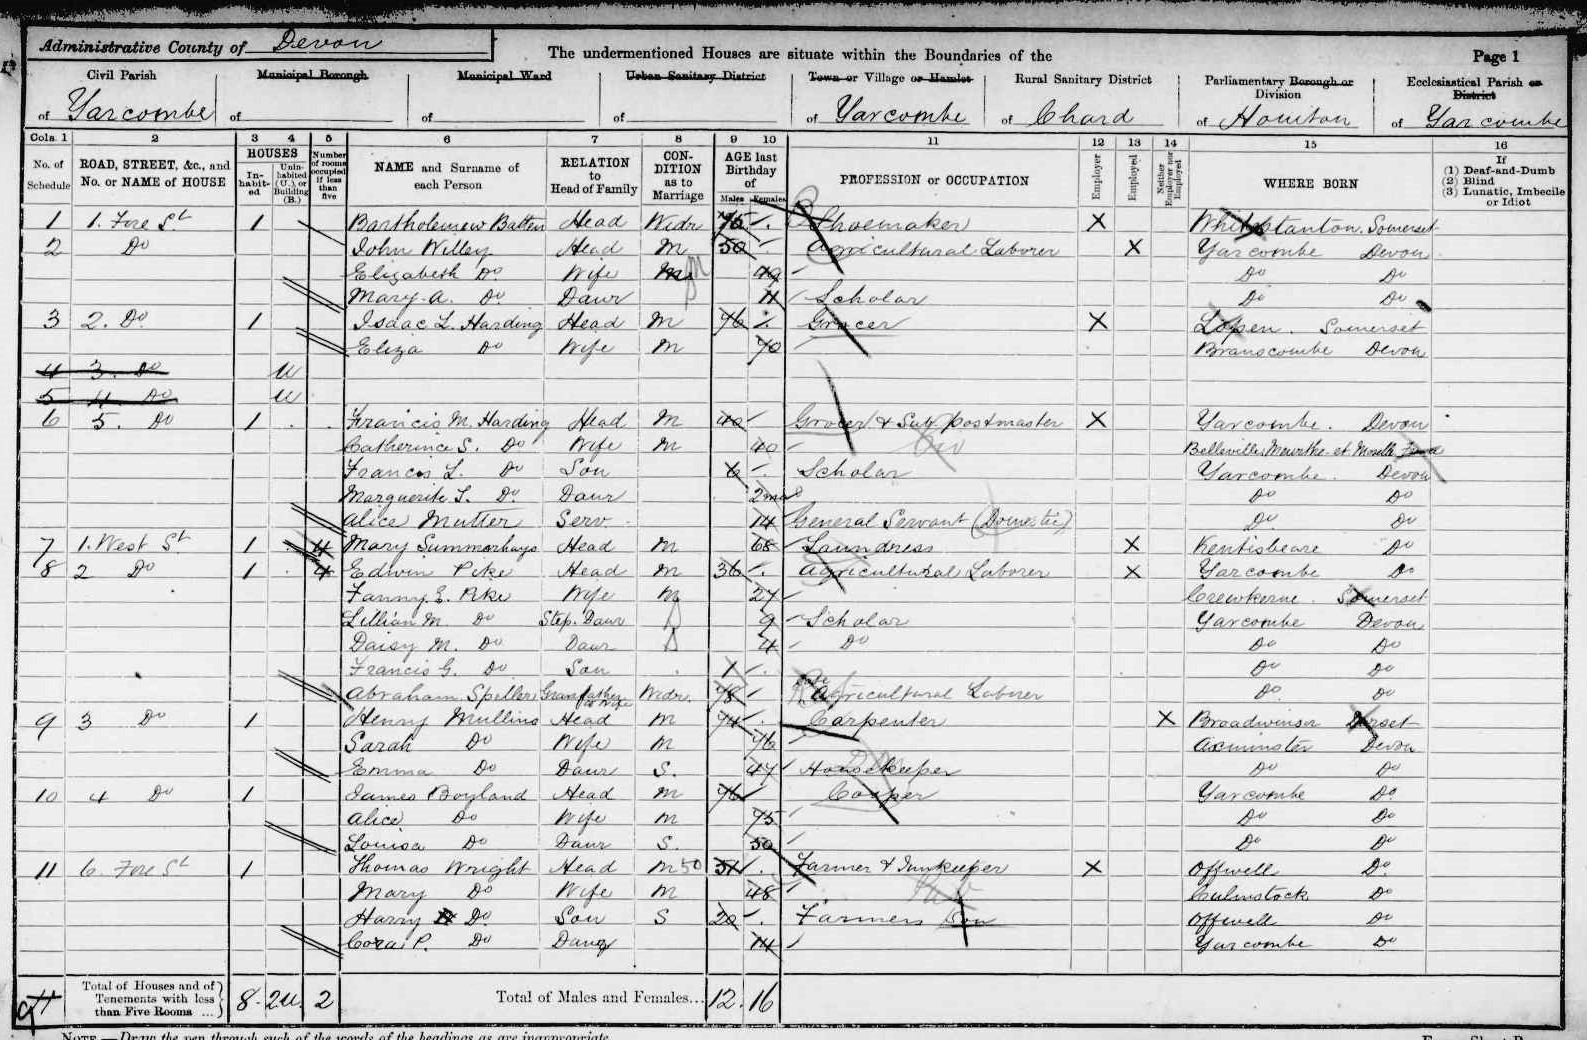 Administrative County of Devon
The undermentioned Houses are situate within the Boundaries of the
Page 1
Civil Parish of Yarcombe
Municipal Borough of
Municipal Ward of
Urban Sanitary District of
Town or Village or Hamlet of Yarcombe
Rural Sanitary District of Chard
Parliamentary Borough or Division of Honiton
Ecclesiastical Parish or District of Yarcombe
Cols. 1 2 3 4 5 6 7 8 9 10 11 12 13 14 15 16
No. of Schedule
ROAD, STREET, &c., and No. or NAME of HOUSE
HOUSES
In-habit-ed
Unin-habited (U.), or Building (B.)
Number of rooms occupied if less than five
NAME and Surname of each Person
RELATION to Head of Family
CON-DITION as to Marriage
AGE last Birthday of
Males Females
PROFESSION or OCCUPATION
Employer
Employed
Neither Employer nor Employed
WHERE BORN
If (1) Deaf-and-Dumb (2) Blind (3) Lunatic, Imbecile or Idiot
1 1. Fore St 1 Bartholemew Batten Head Widr 75 Shoemaker X Whitestanton Somerset
2 Do John Willey Head M 50 Agricultural Laborer X Yarcombe Devon
Elizabeth Do Wife M 49 Do Do
Mary A. Do Daur 11 Scholar Do Do
3 2. Do 1 Isaac L. Harding Head M 76 Grocer X Lopen. Somerset
Eliza Do Wife M 70 Branscombe Devon
4 3. Do U
5 4. Do U
6 5. Do 1 Francis M. Harding Head M 40 Grocer & Sub postmaster X Yarcombe. Devon
Catherine S. Do Wife M 40 Belleville Meurthe et Moselle
Francis L. Do Son 6 Scholar Yarcombe. Devon
Marguerite S. Do Daur 2mo Do Do
Alice Mutter Serv. 14 General Servant (Domestic) Do Do
7 1. West St 1 4 Mary Summerhays Head M 68 Laundress X Kentisbeare Do
8 2 Do 1 4 Edwin Pike Head M 36 Agricultural Laborer X Yarcombe Do
Fanny E. Pike Wife M 27 Crewkerne Somerset
Lillian M. Do Step. Daur 9 Scholar Yarcombe Devon
Daisy M. Do Daur 4 Do Do Do
Francis G. Do Son 1 Do Do
Abraham Spiller Grandfather of Wife Widr. 78 Agricultural Laborer Do Do
9 3 Do 1 Henry Mullins Head M 74 Carpenter X Broadwinsor Dorset
Sarah Do Wife M 76 Axminster Devon
Emma Do Daur S. 47 Housekeeper Do Do
10 4 Do 1 James Boyland Head M 76 Cooper Yarcombe Do
Alice Do Wife M 75 Do Do
Louisa Do Daur S. 50 Do Do
11 6. Fore St 1 Thomas Wright Head M 50 51 Farmer & Innkeeper X Offwell Do
Mary Do Wife M 48 Culmstock Do
Harry Do Son S 20 Farmers Son Offwell Do
Cora P. Do Daug 14 Yarcombe Do
Total of Houses and of Tenements with less than Five Rooms ... 8. 2U. 2
Total of Males and Females... 12. 16
NOTE.—Draw the pen through such of the words of the headings as are inappropriate.